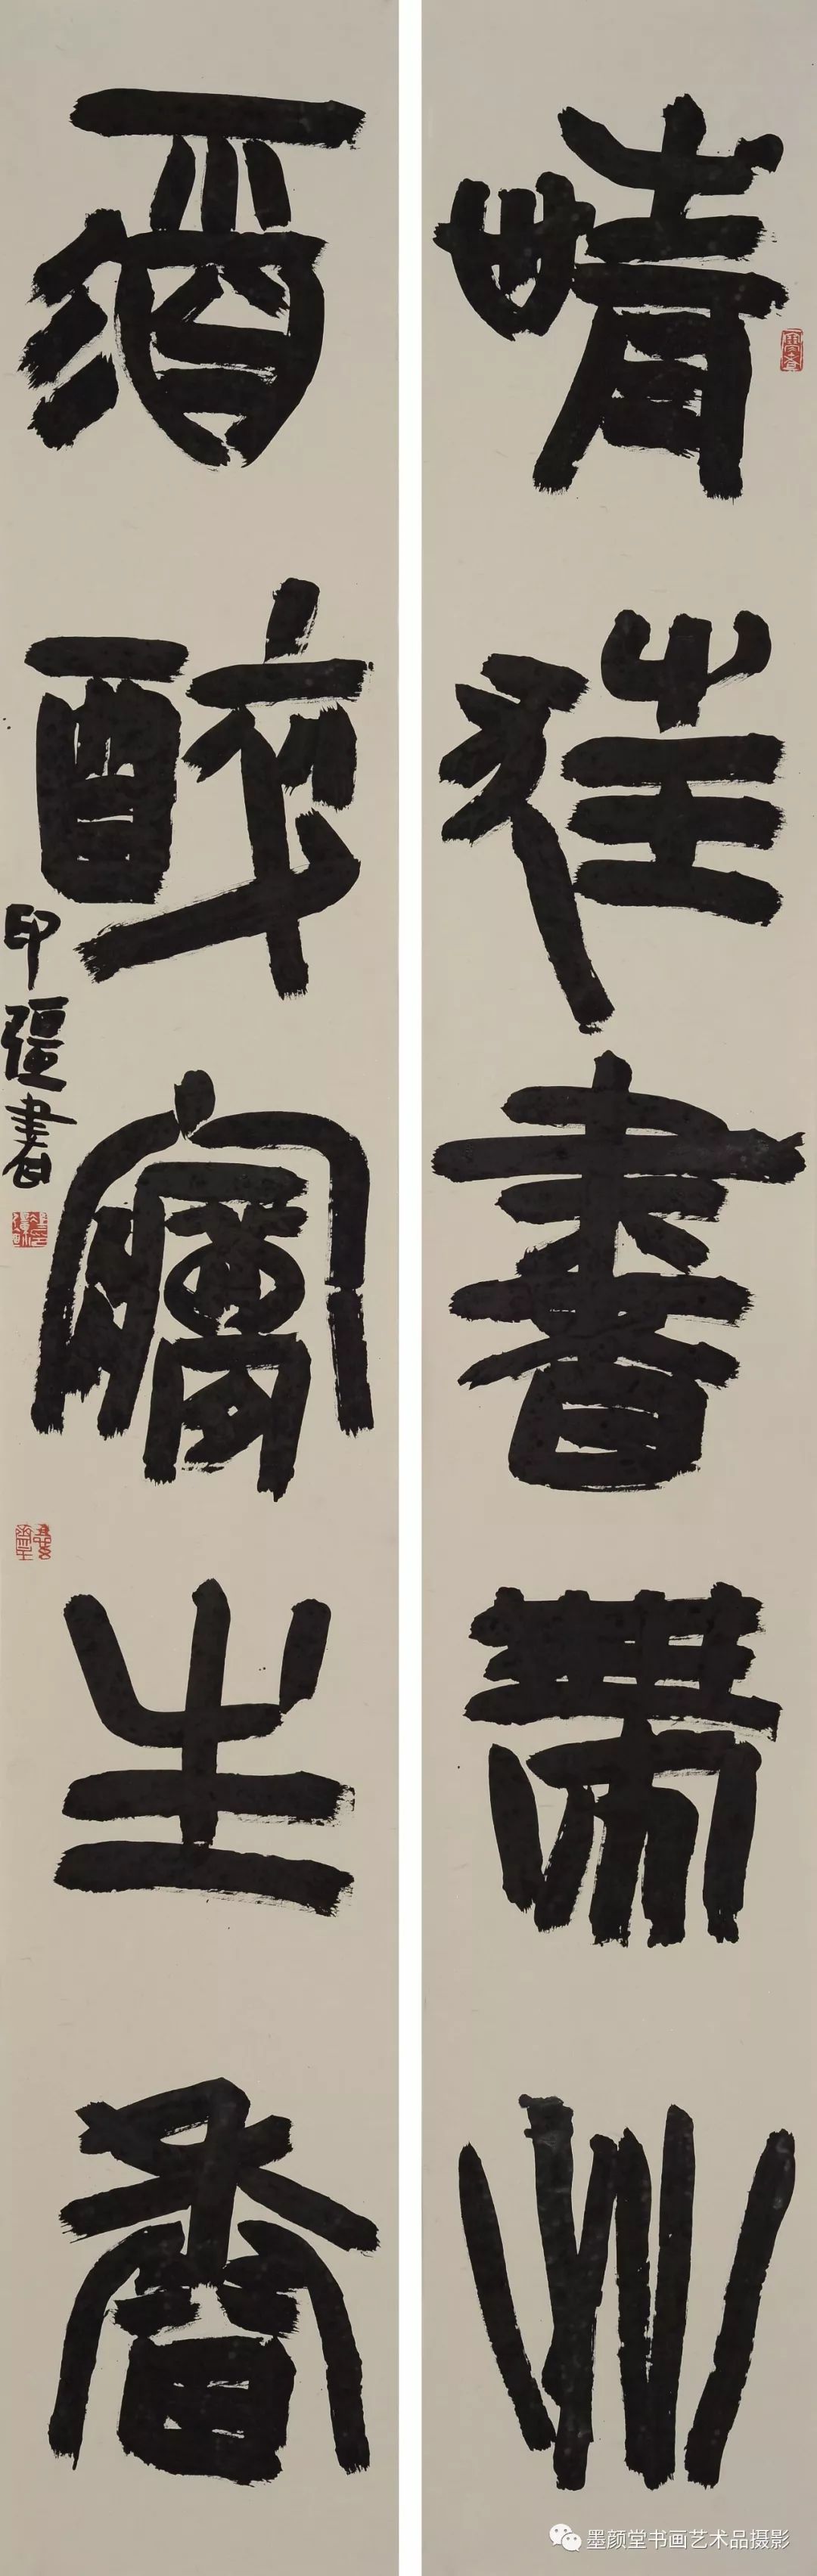 晴往書帶艸
酒醉生香
印强書
墨颜堂书画艺术品摄影